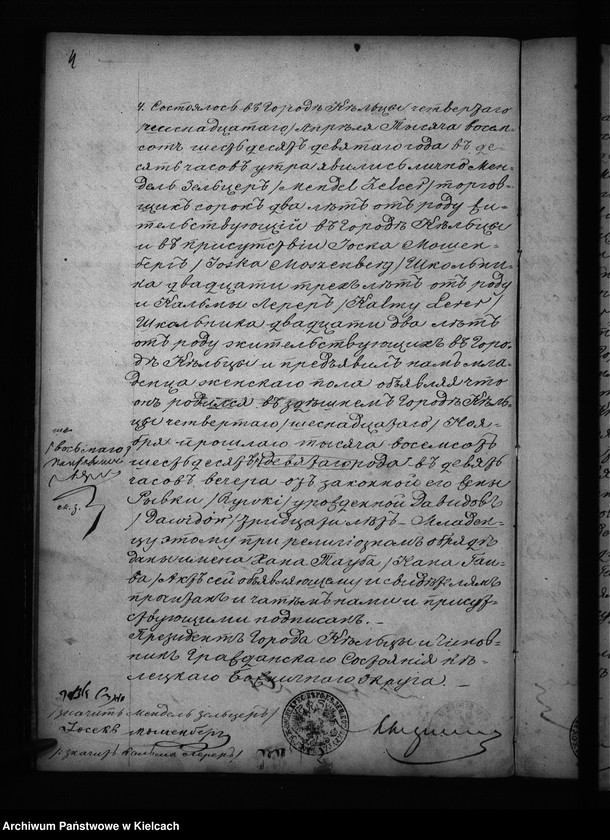 4
4. Состоялось въ Городѣ Кѣльцы четвертаго
/шеснадцатаго/ Апрѣля Тысяча восем-
сотъ шестьдесятъ девятаго года въ де-
сять часовъ утра явились лично Мен-
дель Зельцеръ /Mendel Zelcer/ торгов-
щикъ сорокъ два лѣтъ отъ роду жи-
тельствующій въ Городѣ Кѣльцы
и въ присутствіи Іоска Мошен-
бергъ /Joska Moszenberg/ Школьни-
ка двадцати трехъ лѣтъ отъ роду
и Кальмы Лереръ /Kalmy Lerer/
Школьника двадцати два лѣтъ
отъ роду жительствующихъ въ Горо-
дѣ Кѣльцы и предъявилъ намъ мла-
денца женскаго пола объявляя что
онъ родился въ здѣшнемъ Городѣ Кѣль-
цы четвертаго /шеснадцатаго/ Ноя-
бря прошлаго тысяча восемсотъ
шестьдесятъ девятаго года въ девять
часовъ вечера отъ законной его жены
Рывки /Rywki/ урожденной Давидовъ
/Dawidów/ тридцати лѣтъ. Младен-
цу этому при религіозномъ обрядѣ
даны имена Хана Тауба /Хана Tau-
ba/ Актъ сей объявляющему и свидѣтелямъ
прочитанъ и затѣмъ нами и присут-
ствующими подписанъ. —
Президентъ Города Кѣльцы и Чинов-
никъ Гражданскаго Состоянія Кѣ-
лецкаго Божничнаго Округа. —
/восьмаго/
/значитъ Мендель Зельцеръ/
Іосекъ Мошенбергъ
/: значитъ Кальма Лереръ/
Archiwum Państwowe w Kielcach
www.szukajwarchiwach.gov.pl